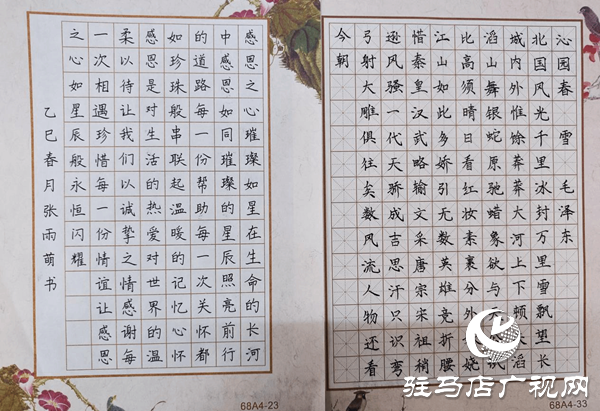 沁园春 雪 毛泽东
北国风光千里冰封万里雪飘望长
城内外惟馀莽莽大河上下顿滔
滔山舞银蛇原驰蜡象欲与天试
比高须晴日看红妆素裹分外娆
江山如此多娇引无数英雄竞折腰
惜秦皇汉武略输文采唐宗宋祖稍
逊风骚一代天骄成吉思汗只识弯
弓射大雕俱往矣数风流人物还看
今朝
68A4-33
感恩之心璀璨如星在生命的长河
中感恩如同璀璨的星辰照亮前行
的道路每一份帮助每一次关怀都
如珍珠般串联起温暖的记忆心怀
感恩是对生活的热爱对世界的温
柔以待让我们以诚挚之情感谢每
一次相遇珍惜每一份情谊让感恩
之心如星辰般永恒闪耀
乙巳春月张雨萌书
68A4-23
驻马店广视网